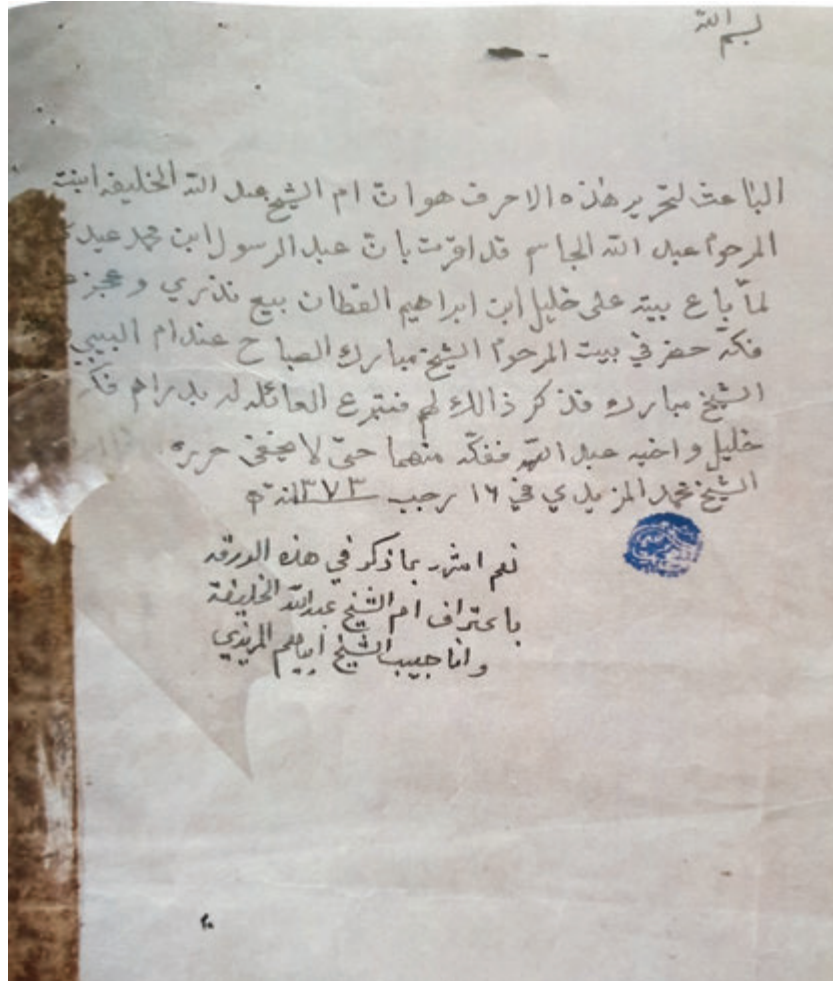 بسم الله
الباعث لتحرير هذه الاحرف هو ان ام الشيخ عبد الله الخليفه ابنت
المرحوم عبد الله الجاسم قد اقرت بان عبد الرسول ابن محمد عيد
لمّا باع بيته على خليل ابن ابراهيم القطان بيع نذري و عجز
فكّه حضر في بيت المرحوم الشيخ مبارك الصباح عند ام البيبي
الشيخ مبارك فذكر ذالك لهم فتبرع العائله له بدراهم
خليل و اخيه عبد الله ففكّه منهما حتّى لا يخفى حرره
الشيخ محمد المزيدي في ١٦ رجب ٣٧٣
نعم اشهد بما ذكر في هذه الورقه
باعتراف ام الشيخ عبدالله الخليفة
وانا حبيب الشيخ ابراهيم المزيدي